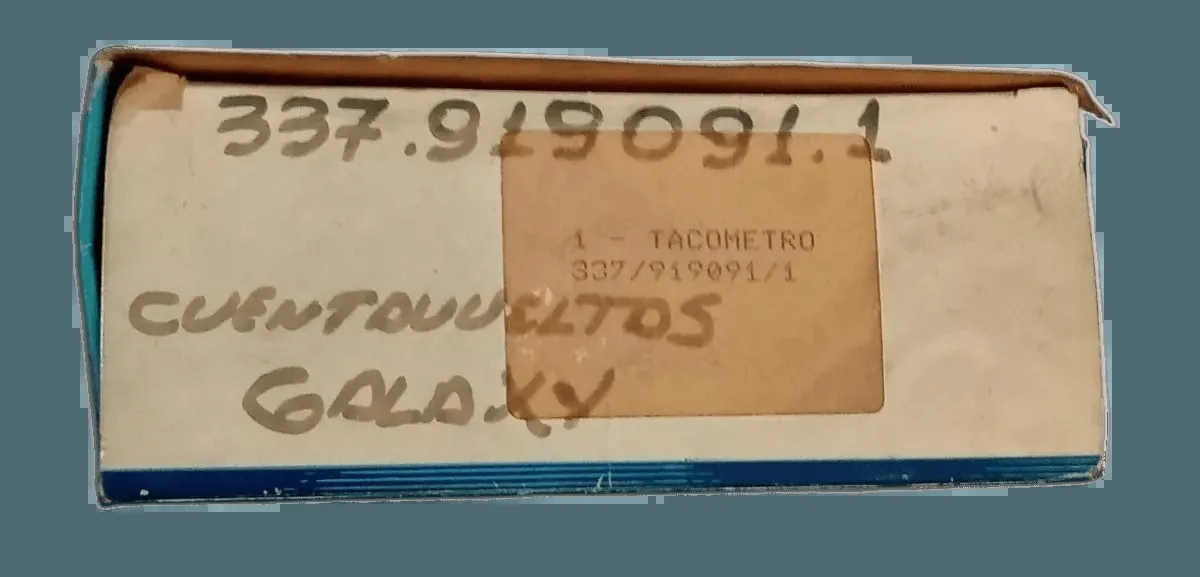 337.919091.1
1 - TACOMETRO
337/919091/1
CUENTAVUELTAS
GALAXY